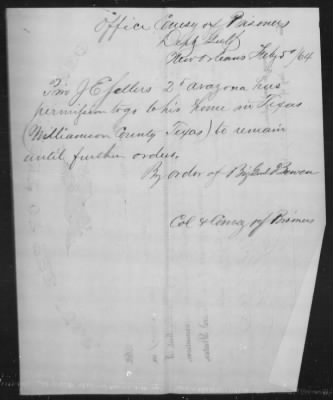 Office Comsy of Prisoners
Dept Gulf
New Orleans Feby 5th /64
J E 2d arazona has
permission to go to his home in Texas
(Williamson County Texas) to remain
until further orders.
By order of Brig Genl Bowen
Col & Comsy of Prisoners